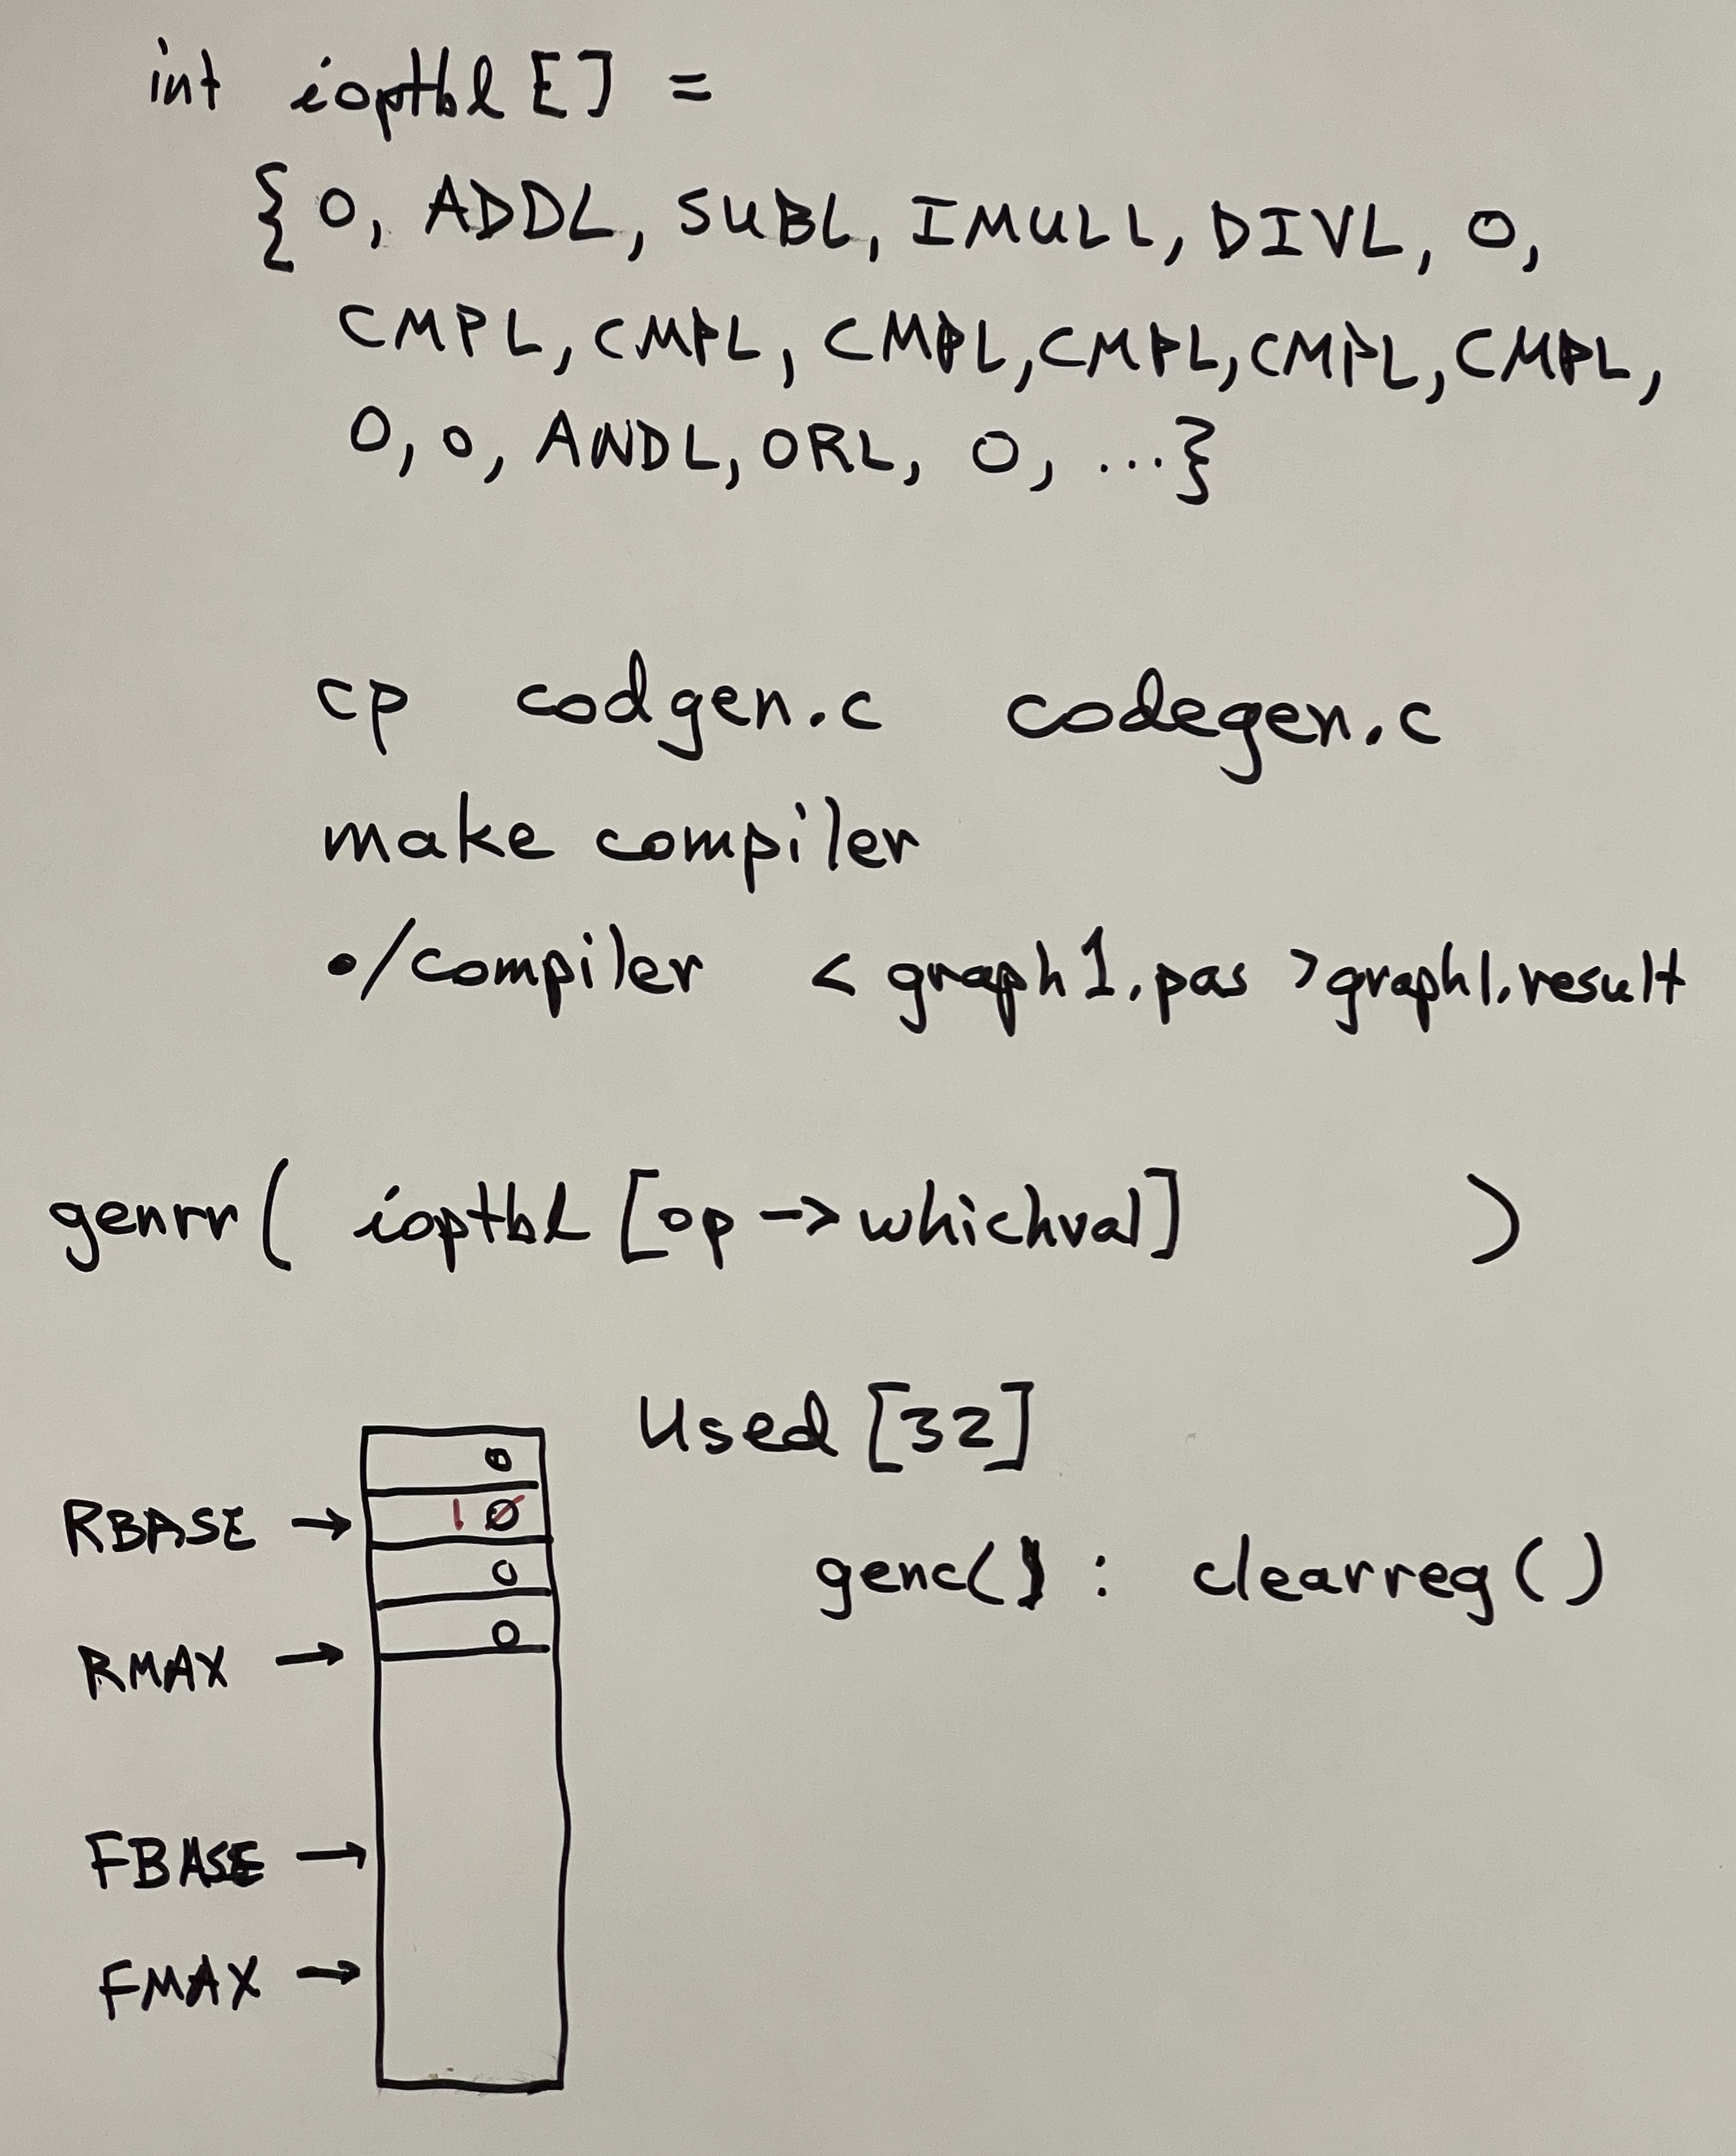 int ioptbl [] =
{ 0, ADDL, SUBL, IMULL, DIVL, 0,
CMPL, CMPL, CMPL, CMPL, CMPL, CMPL,
0, 0, ANDL, ORL, 0, ...}
cp codgen.c codegen.c
make compiler
./compiler < graph1.pas >graph1.result
genrr( ioptbl [op -> whichval] )
Used [32]
0
RBASE → 1 0
genc() : clearreg ()
0
0
RMAX →
FBASE →
FMAX →